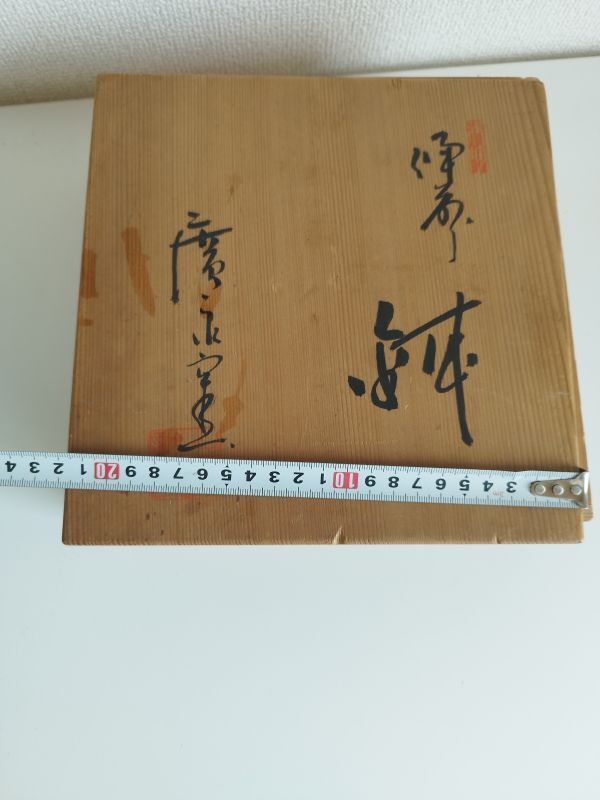 備前
鉢
廣永窯
4 3 2 1 20 9 8 7 6 5 4 3 2 1 10 9 8 7 6 5 4 3